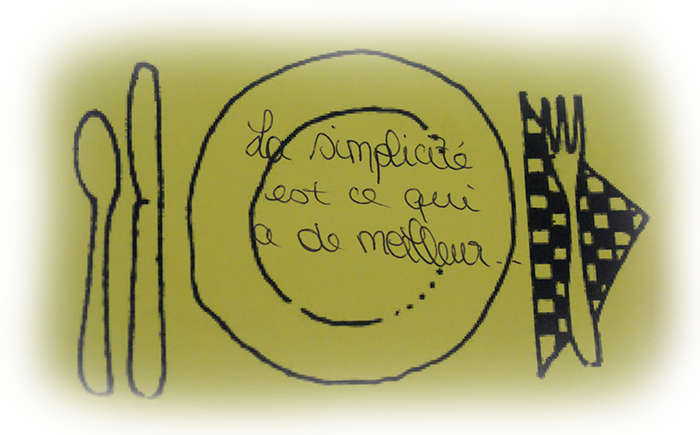 La simplicité
est ce qui
a de meilleur...